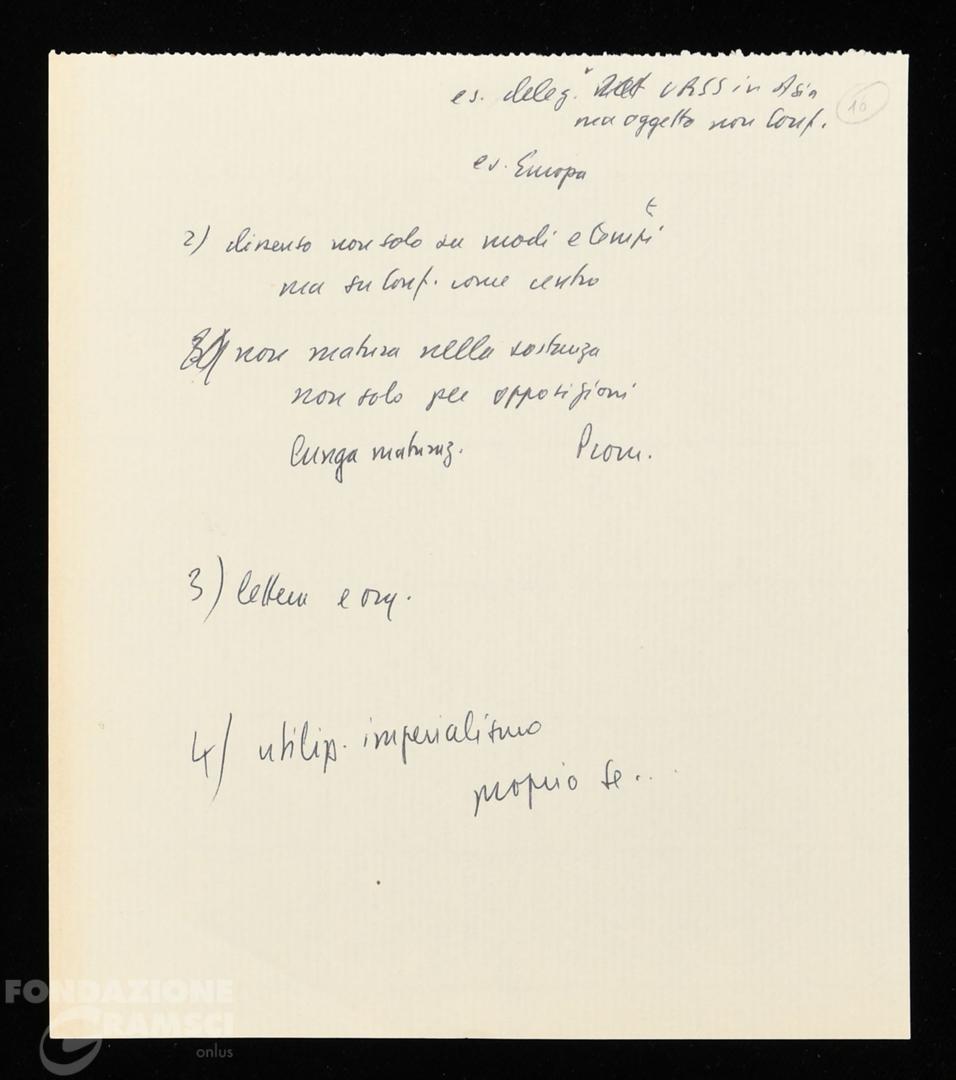 es. deleg. URSS in Asia
10
ma oggetto non Conf.
es. Europa
2) dissenso non solo su modi e tempi
ma su Conf. come centro
non matura nella sostanza
non solo per opposizioni
lunga maturaz. Prom.
3) lettera e
4) utilizz. imperialismo
proprio se...
FONDAZIONE
GRAMSCI
onlus